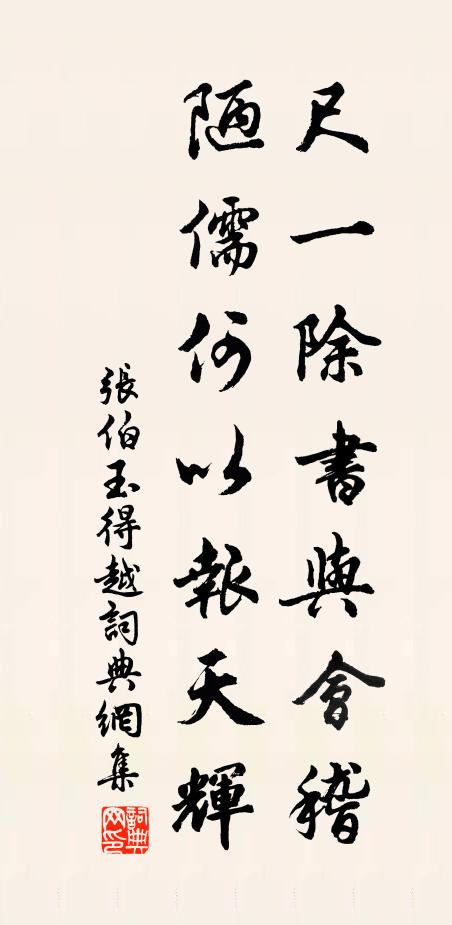 尺一除書與會稽
陋儒何以報天輝
張伯玉得越詞典網集
詞典網印